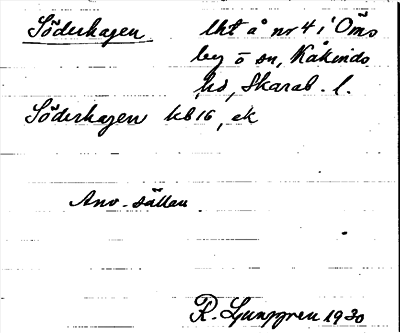 Söderhagen lht å nr 4 i Öms
by o sn, Kåkinds
hd, Skarab. l.
Söderhagen kb 16, ek
Anv. sällan
R. Ljunggren 1930